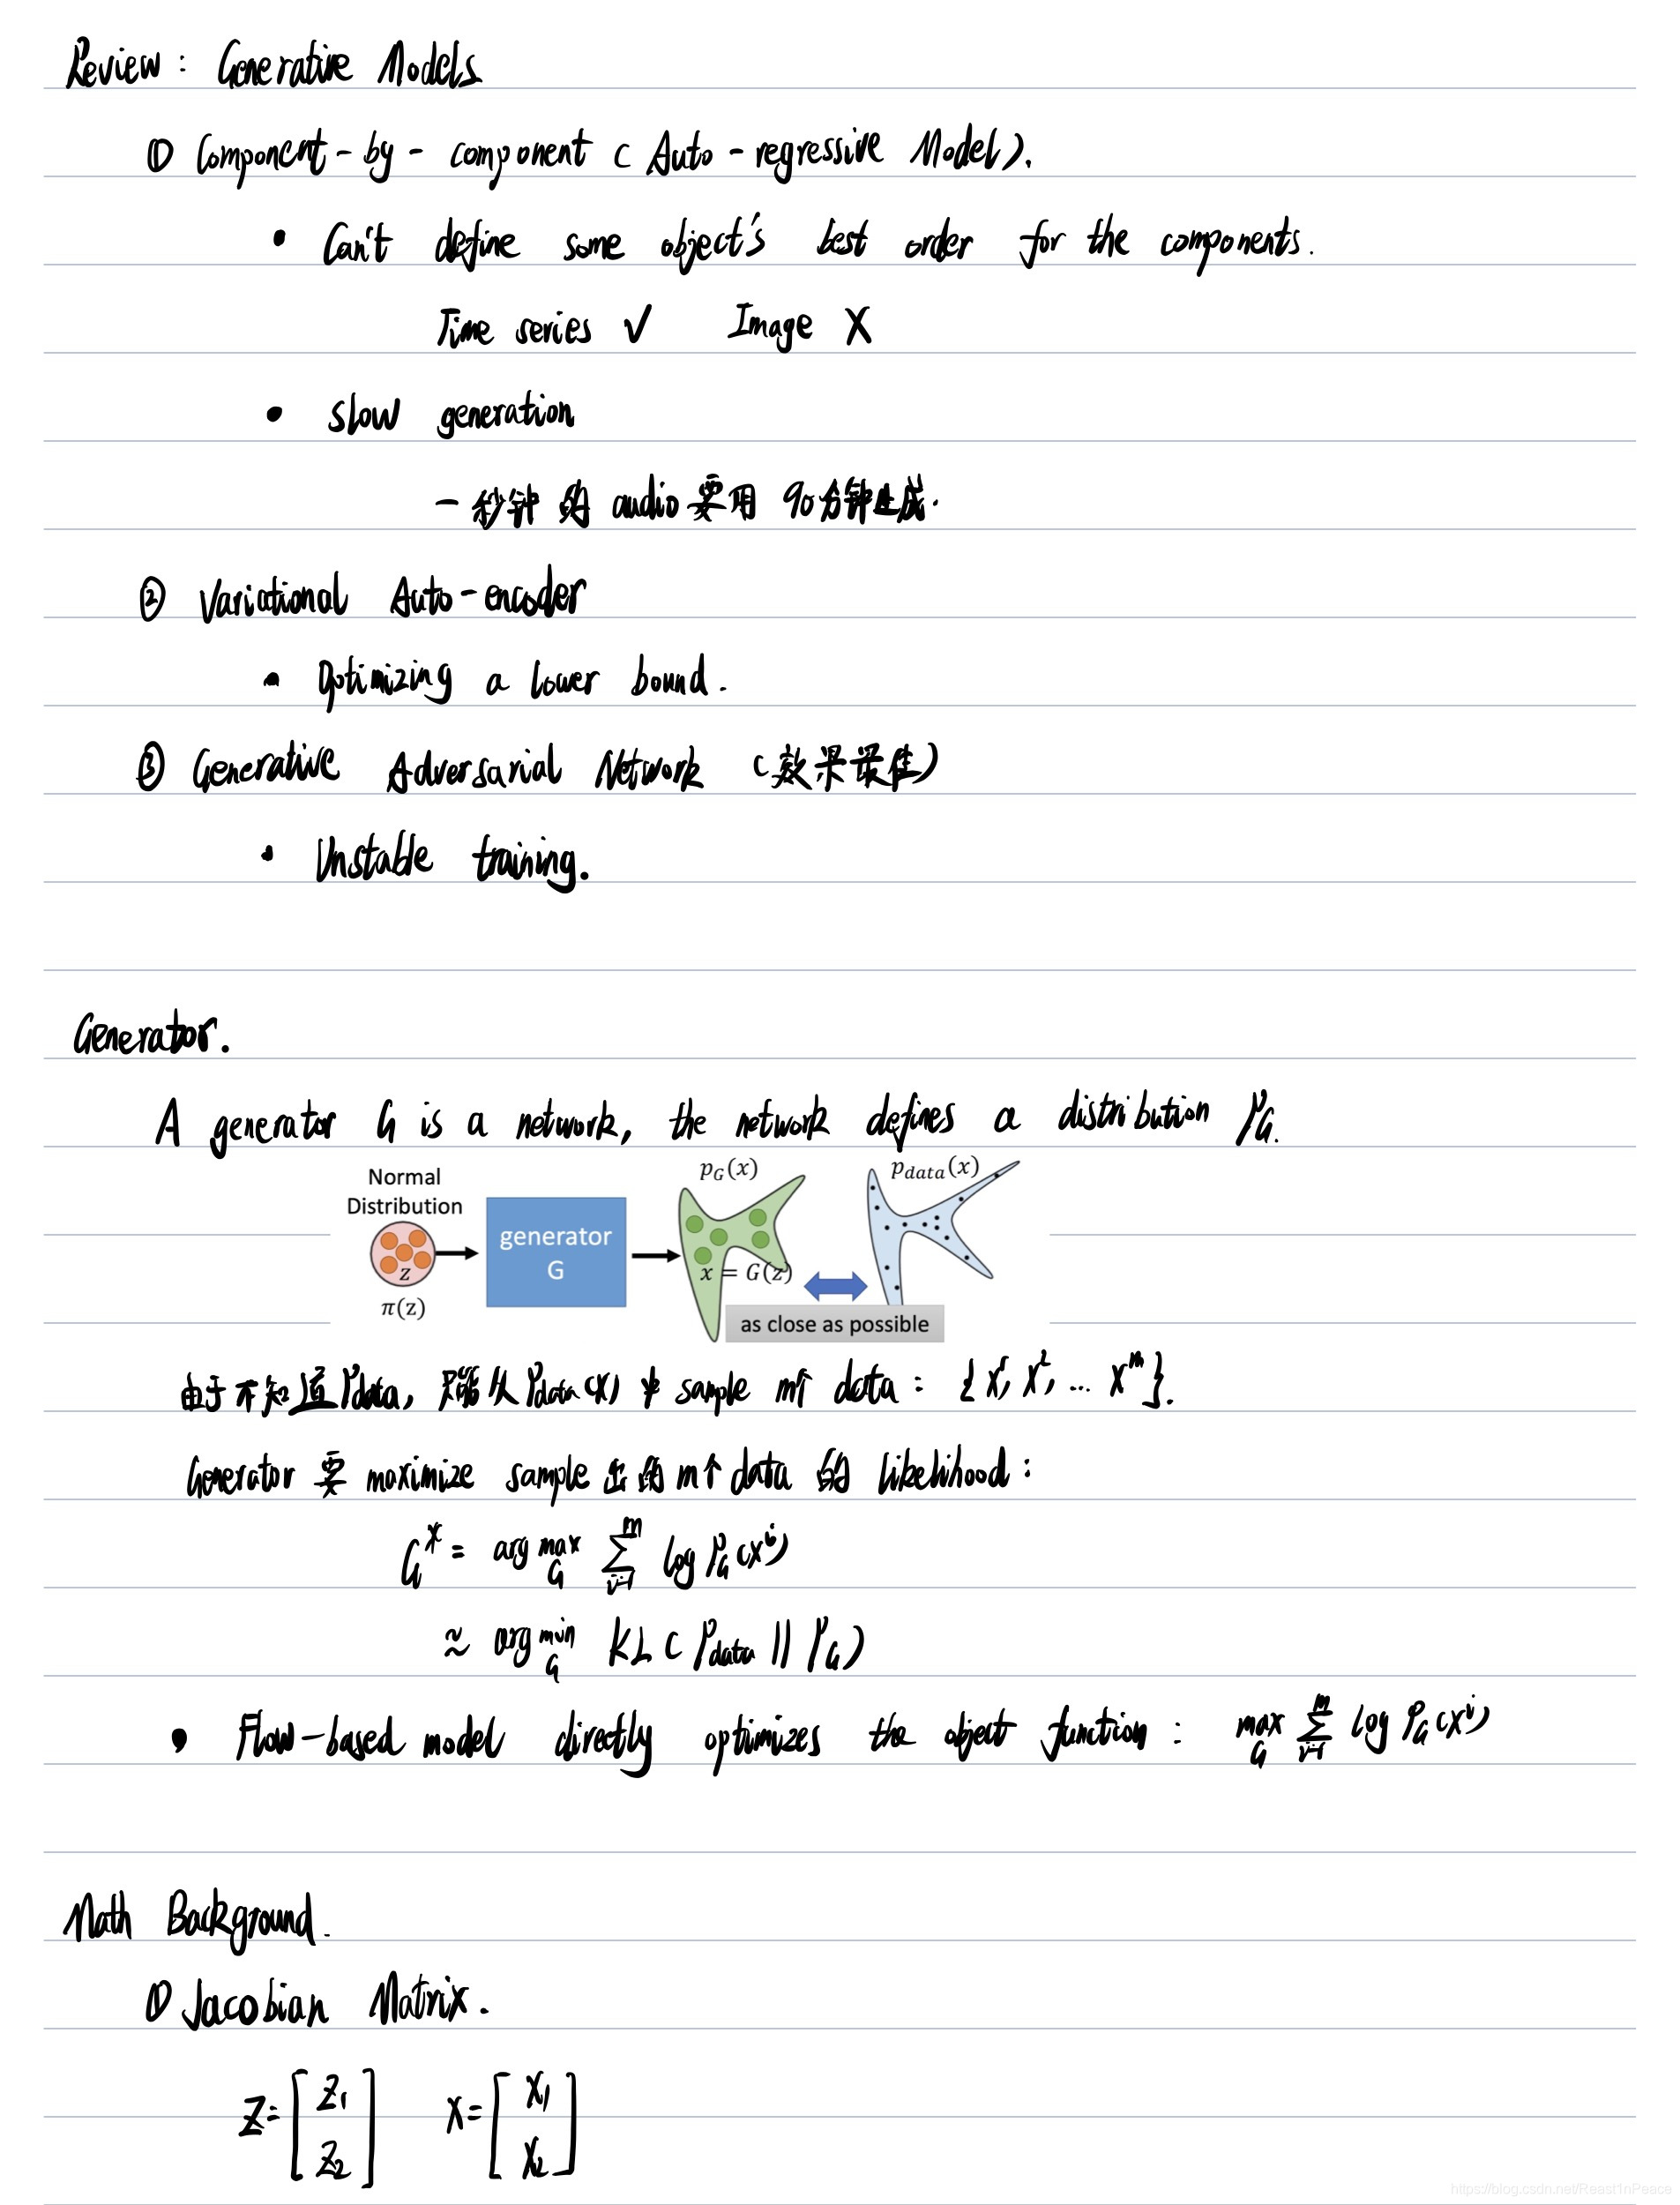 Review : Generative Models
① Component-by-component (Auto-regressive Model).
• Can't define some object's best order for the components.
Time series √ Image X
• slow generation
一秒钟的 audio 要用 90分钟生成.
② Variational Auto-encoder
• Optimizing a lower bound.
③ Generative Adversarial Network (效果最佳)
• Unstable training.
Generator.
A generator G is a network, the network defines a distribution P_G.
Normal
Distribution
z
π(z)
generator
G
p_G(x)
x = G(z)
p_data(x)
as close as possible
由于不知道 P_data, 只能从 P_data(x) 中 sample m个 data : {x^1, x^2, ... x^m}.
Generator 要 maximize sample 出的 m个 data 的 likelihood :
G^* = arg max_G ∑_{i=1}^m log P_G(x^i)
≈ arg min_G KL(P_data || P_G)
• Flow-based model directly optimizes the object function : max_G ∑_{i=1}^m log P_G(x^i)
Math Background.
① Jacobian Matrix.
Z = [z_1 z_2] X = [x_1 x_2]
https://blog.csdn.net/Reast1nPeace